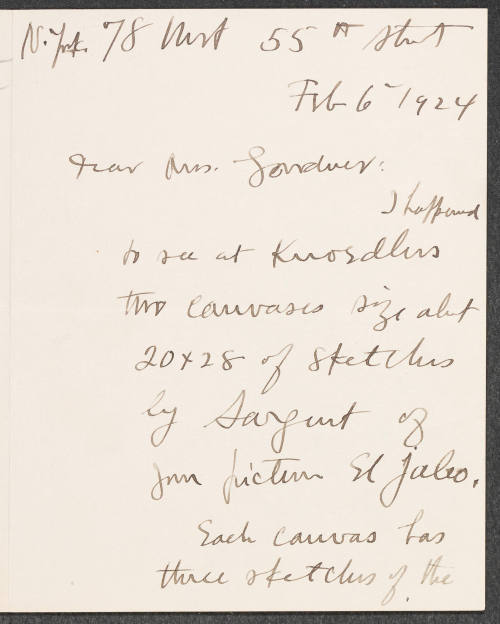 N. York. 78 West 55th Street
Feb 6 1924
Dear Mrs. Gardner:
I happened
to see at Knoedlers
two canvases size abt
20x28 of sketches
by Sargent of
your picture El Jaleo.
Each canvas has
three sketches of the